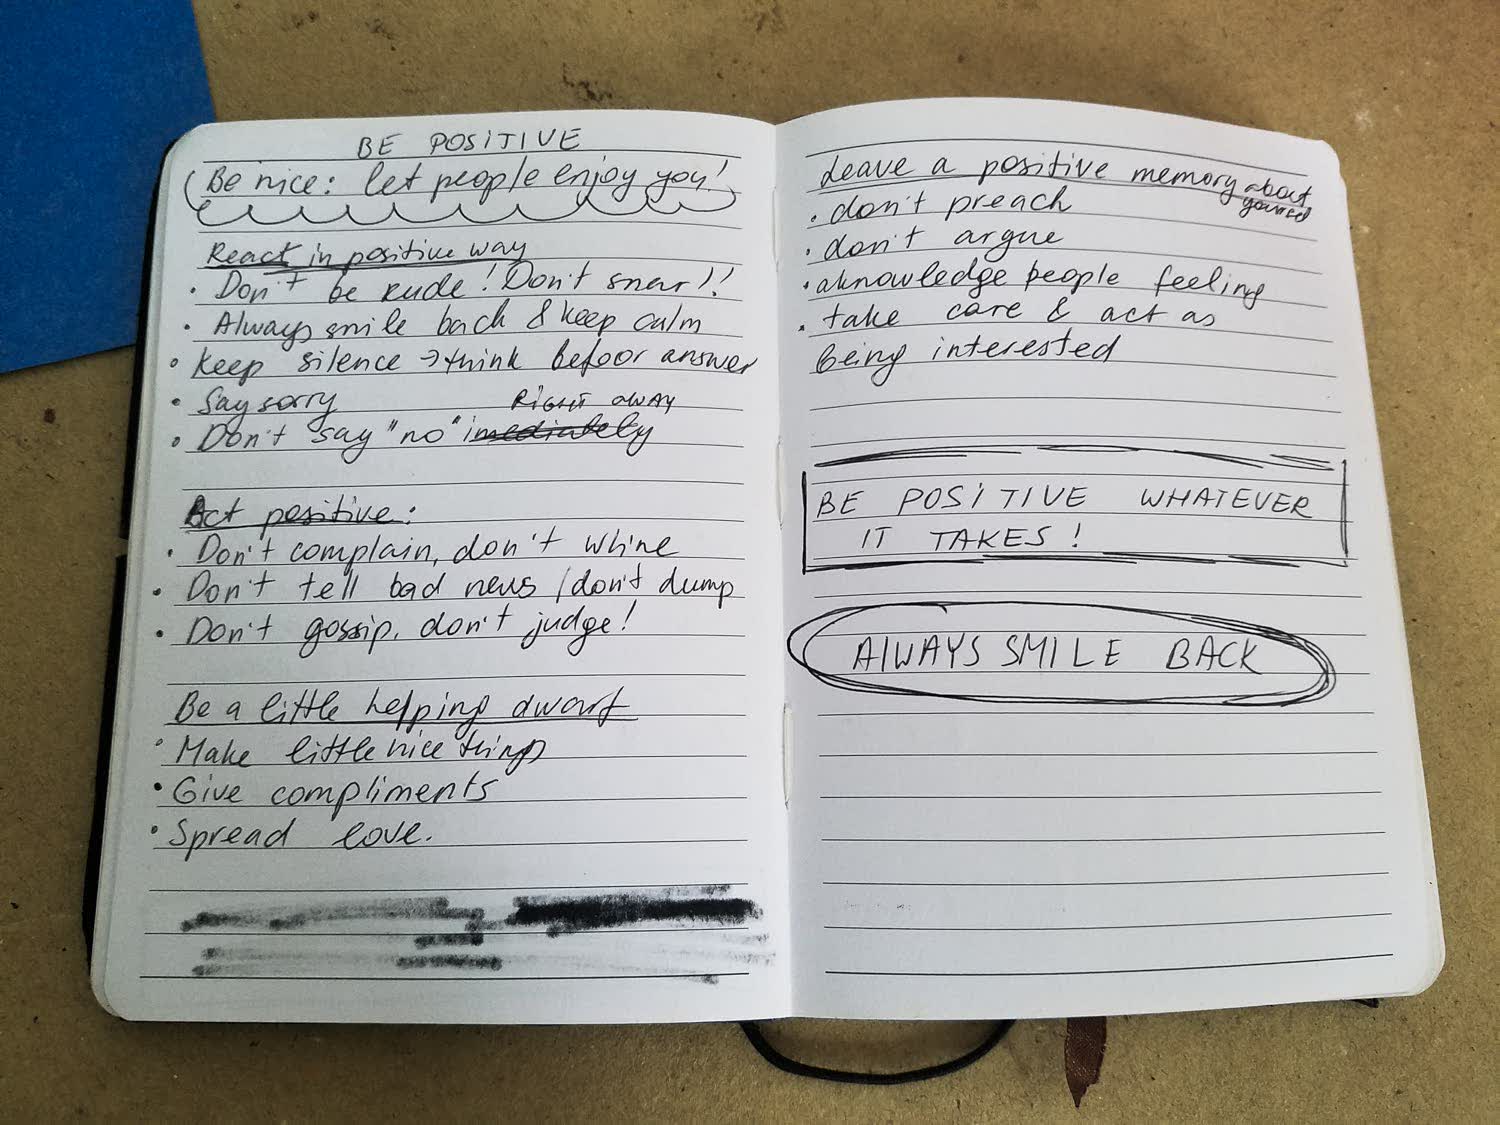 BE POSITIVE
Be nice: let people enjoy you!
React in positive way
• Don't be rude! Don't snar!!
• Always smile back & keep calm
• Keep silence → think befoor answer
• Say sorry
RIGHT AWAY
• Don't say "no" imediately
Act positive:
• Don't complain, don't whine
• Don't tell bad news / don't dump
• Don't gossip, don't judge!
Be a little helping dwarf
• Make little nice things
• Give compliments
• Spread love.
Leave a positive memory about
yourself
• don't preach
• don't argue
• aknowledge people feeling
• take care & act as
being interested
BE POSITIVE WHATEVER
IT TAKES!
ALWAYS SMILE BACK